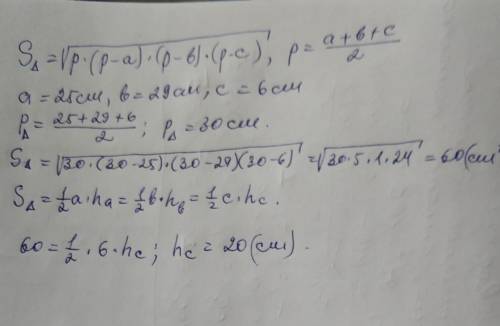 S_Δ = √(p·(p-a)·(p-в)·(p-c)), p = (a+в+c)/2
a = 25см, в = 29см, c = 6см
P_Δ = (25+29+6)/2; P_Δ = 30см.
S_Δ = √(30·(30-25)·(30-29)(30-6)) = √(30·5·1·24) = 60(см
S_Δ = 1/2 a·h_a = 1/2 в·h_в = 1/2 c·h_c.
60 = 1/2 · 6·h_c; h_c = 20(см).